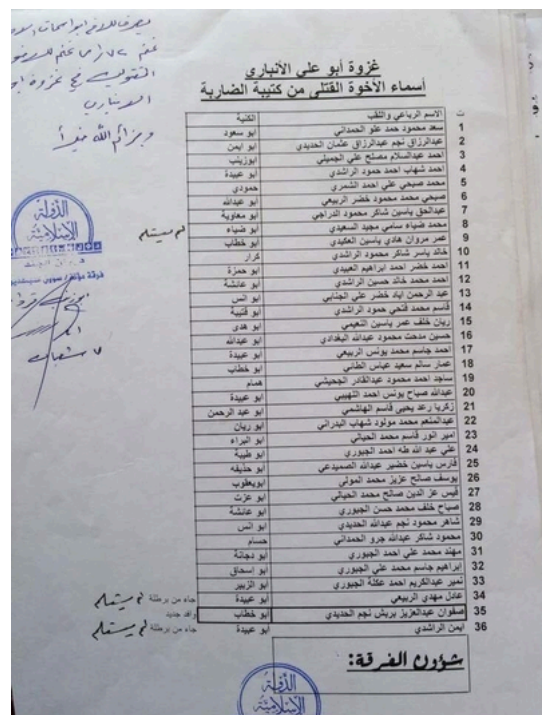 غزوة أبو علي الأنباري
أسماء الأخوة القتلى من كتيبة الضاربة
ت الاسم الرباعي واللقب الكنية
1 سعد محمود حمد علو الحمداني ابو سعود
2 عبدالرزاق نجم عبدالرزاق عثمان الحديدي ابو ايمن
3 احمد عبدالسلام مصلح علي الجميلي ابوزينب
4 احمد شهاب احمد حمود الراشدي ابو عبيدة
5 محمد صبحي علي احمد الشمري حمودي
6 صبحي محمد محمود خضر الربيعي ابو عبدالله
7 عبدالحق ياسين شاكر محمود الدراجي ابو معاوية
8 محمد ضياء سامي مجيد السعيدي ابو ضياء لم يستلم
9 عمر مروان هادي ياسين العكيدي ابو خطاب
10 خالد ياسر شاكر محمود الراشدي كرار
11 احمد خضر احمد ابراهيم العبيدي ابو حمزة
12 احمد محمد خالد حسين الراشدي ابو عائشة
13 عبد الرحمن اياد خضر علي الجنابي ابو انس
14 قاسم محمد فتحي حمود الراشدي ابو قتيبة
15 ريان خلف عمر ياسين النعيمي ابو هدى
16 حسين مدحت محمود عبدالله البغدادي ابو عبدالله
17 احمد جاسم محمد يونس الربيعي ابو عبيدة
18 عمار سالم سعيد عباس الطائي ابو خطاب
19 ساجد احمد محمود عبدالقادر الجحيشي همام
20 عبدالله صباح يونس احمد اللهيبي ابو عبيدة
21 زكريا رعد يحيى قاسم الهاشمي ابو عبد الرحمن
22 عبدالمنعم محمد مولود شهاب البدراني ابو ريان
23 امير انور قاسم محمد الحيالي ابو البراء
24 علي عبد الله طه احمد الجبوري ابو طيبة
25 فارس ياسين خضير عبدالله الصميدعي ابو حذيفه
26 يوسف صالح عزيز محمد المولى ابويعقوب
27 قيس عز الدين صالح محمد الحيالي ابو عزت
28 صباح خلف محمد حسن الجبوري ابو عائشة
29 شاهر محمود نجم عبدالله الحديدي ابو انس
30 محمود شاكر عبدالله جرو الحمداني حسام
31 مهند محمد علي احمد الجبوري ابو دجانة
32 ابراهيم جاسم محمد علي الجبوري ابو إسحاق
33 نمير عبدالكريم احمد عكلة الجبوري ابو الزبير
34 عادل مهدي الربيعي ابو عبيدة جاء من برطلة لم يستلم
35 صفوان عبدالعزيز بريش نجم الحديدي ابو خطاب وافد جديد
36 ايمن الراشدي ابو عبيدة جاء من برطلة لم يستلم
شؤون الفرقة:
الدولة
الإسلامية
وجزاكم الله خيراً
الدولة
الإسلامية
ديوان الجند